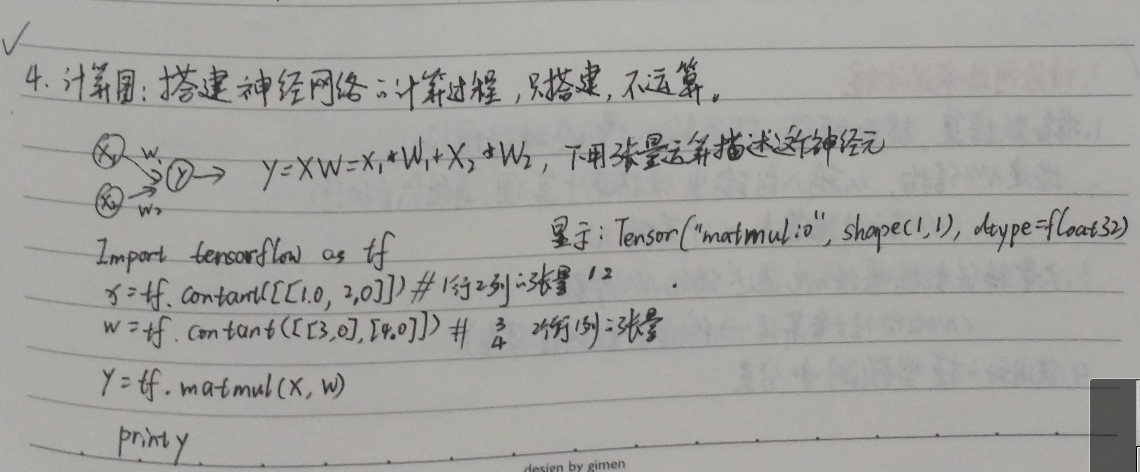 4. 计算图：搭建神经网络的计算过程，只搭建，不运算。
X₁ W₁ Y Y=XW=X₁*W₁+X₂*W₂，下用张量运算描述这个神经元
X₂ W₂
Import tensorflow as tf 显示：Tensor("matmul:0", shape(1,1), dtype=float32)
x=tf.contant([[1.0, 2,0]]) # 1行2列的张量 1 2
w=tf.contant([[3,0],[4,0]]) # 3 4 2行1列的张量
Y=tf.matmul(X, W)
print y
design by gimen